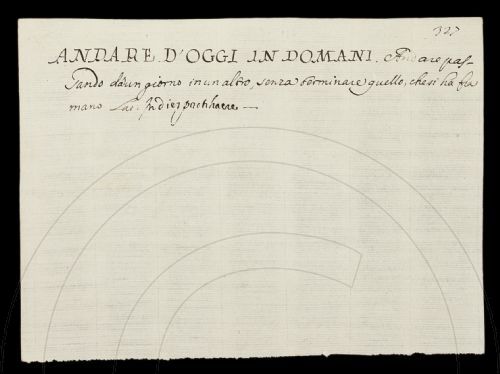 327
ANDARE D'OGGI IN DOMANI. Andare pas-
sando da un giorno in un altro, senza terminare quello, che si ha fra
mano Lat. In diem